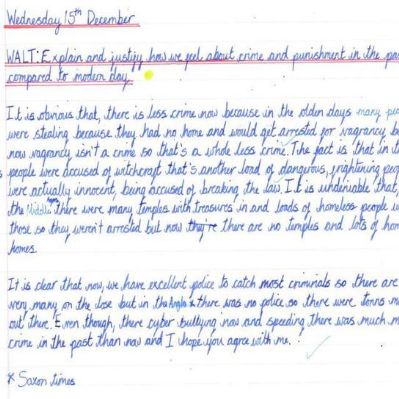 Wednesday 15th December
WALT: Explain and justify how we feel about crime and punishment in the pas
compared to modern day.
It is obvious that, there is less crime now because in the olden days many peo
were stealing because they had no home and would get arrested for vagrancy b
now vagrancy isn't a crime so that's a whole less crime. The fact is that in
people were accused of witchcraft that's another load of dangerous, frightening peop
were actually innocent, being accused of breaking the law. It is undeniable that,
the Middle Ages there were many temples with treasures in and loads of homeless people
those so they weren't arrested but now they're there are no temples and lots of hom
homes.
It is clear that now, we have excellent police to catch most criminals so there are
very many on the lose but in the Anglo * there was no police so there were tonns m
out there. Even though, there cyber bullying now and speeding there was much m
crime in the past than now and I hope you agree with me.
* Saxon times